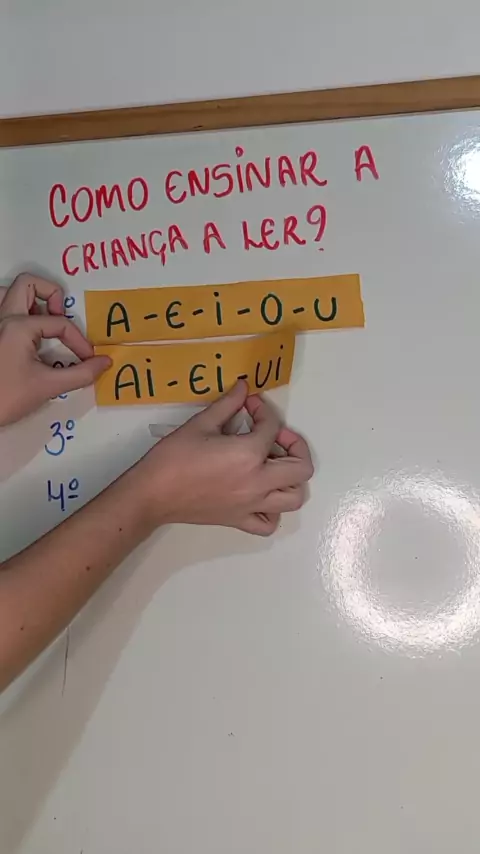 COMO ENSINAR A
CRIANÇA A LER?
A-E-i-O-U
Ai-Ei-Ui
3º
4º